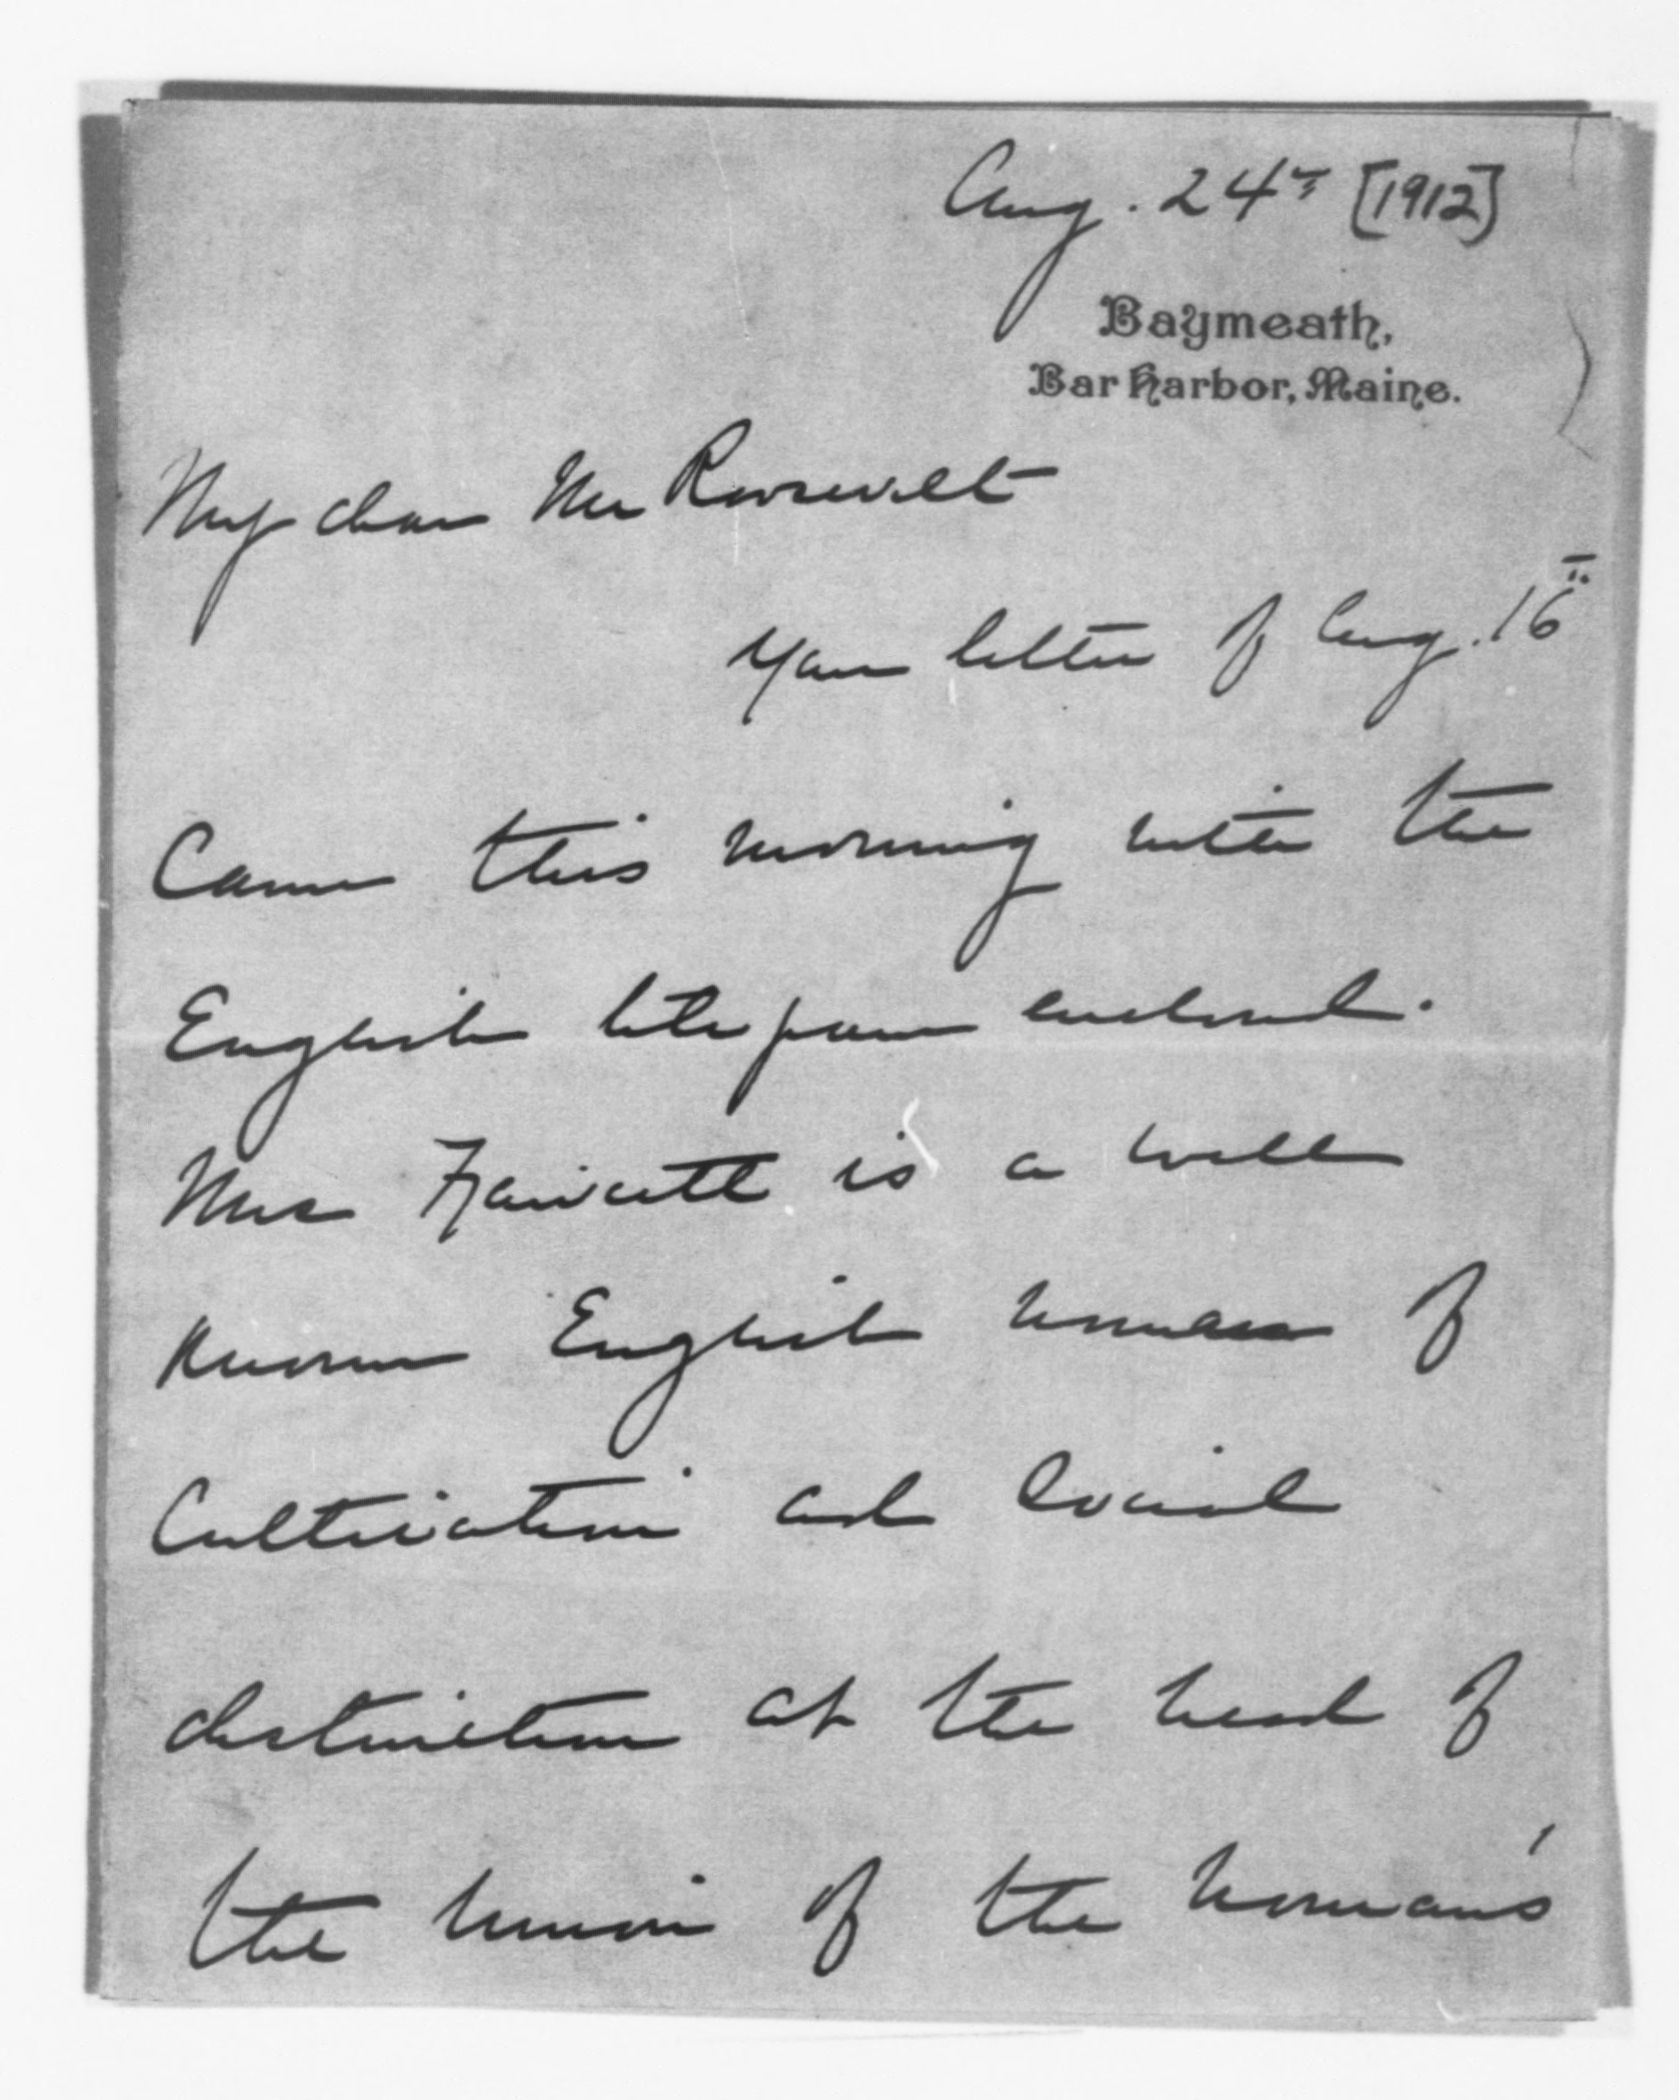 Aug. 24th [1912]
Baymeath,
Bar Harbor, Maine.
My dear Mr Roosevelt
Your letter of Aug. 16th
Came this morning with the
English letter enclosed.
Mrs Fawcett is a well
known English woman of
Cultivation and Social
distinction at the head of
the Union of the Woman's